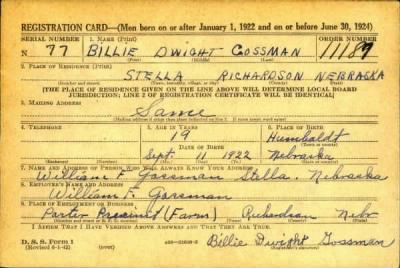 REGISTRATION CARD—(Men born on or after January 1, 1922 and on or before June 30, 1924)
SERIAL NUMBER 1. NAME (Print) ORDER NUMBER
N 77 BILLIE DWIGHT GOSSMAN 11189
(First) (Middle) (Last)
2. PLACE OF RESIDENCE (Print)
STELLA RICHARDSON NEBRASKA
[THE PLACE OF RESIDENCE GIVEN ON THE LINE ABOVE WILL DETERMINE LOCAL BOARD
JURISDICTION; LINE 2 OF REGISTRATION CERTIFICATE WILL BE IDENTICAL]
3. MAILING ADDRESS
Same
4. TELEPHONE 5. AGE IN YEARS 6. PLACE OF BIRTH
19 Humboldt
DATE OF BIRTH (Town or county)
Sept. 11 1922 Nebraska
(Exchange) (Number) (Mo.) (Day) (Yr.) (State or country)
7. NAME AND ADDRESS OF PERSON WHO WILL ALWAYS KNOW YOUR ADDRESS
William F Gossman Stella, Nebraska
8. EMPLOYER'S NAME AND ADDRESS
William F Gossman
9. PLACE OF EMPLOYMENT OR BUSINESS
Porter Precinct (Farm) Richardson Nebr
I AFFIRM THAT I HAVE VERIFIED ABOVE ANSWERS AND THAT THEY ARE TRUE.
D. S. S. Form 1
(Revised 6-1-42) Billie Dwight Gossman